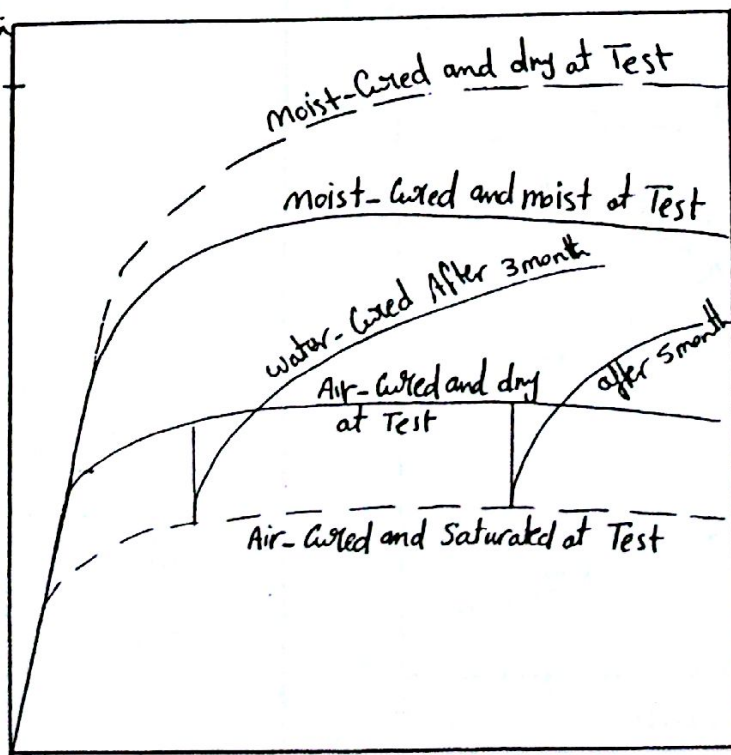 Moist-Cured and dry at Test
Moist-Cured and moist at Test
Water-Cured After 3month
after 5month
Air-Cured and dry
at Test
Air-Cured and Saturated at Test